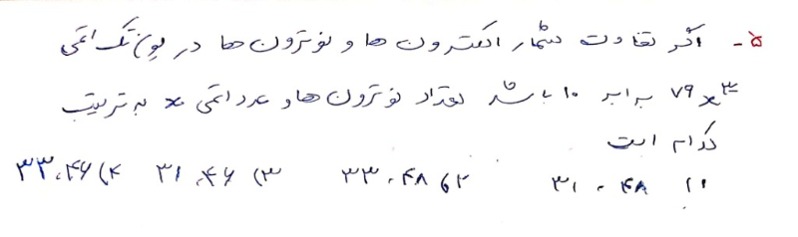 ۵- اگر تفاوت شمار الکترون ها و نوترون ها در یون تک اتمی
۷۹ x ۳- برابر ۱۰ باشد تعداد نوترون ها و عدد اتمی x به ترتیب
کدام است
۱) ۴۸ ، ۳۱ ۲) ۴۸ ، ۳۳ ۳) ۴۶ ، ۳۱ ۴) ۴۶ ، ۳۳